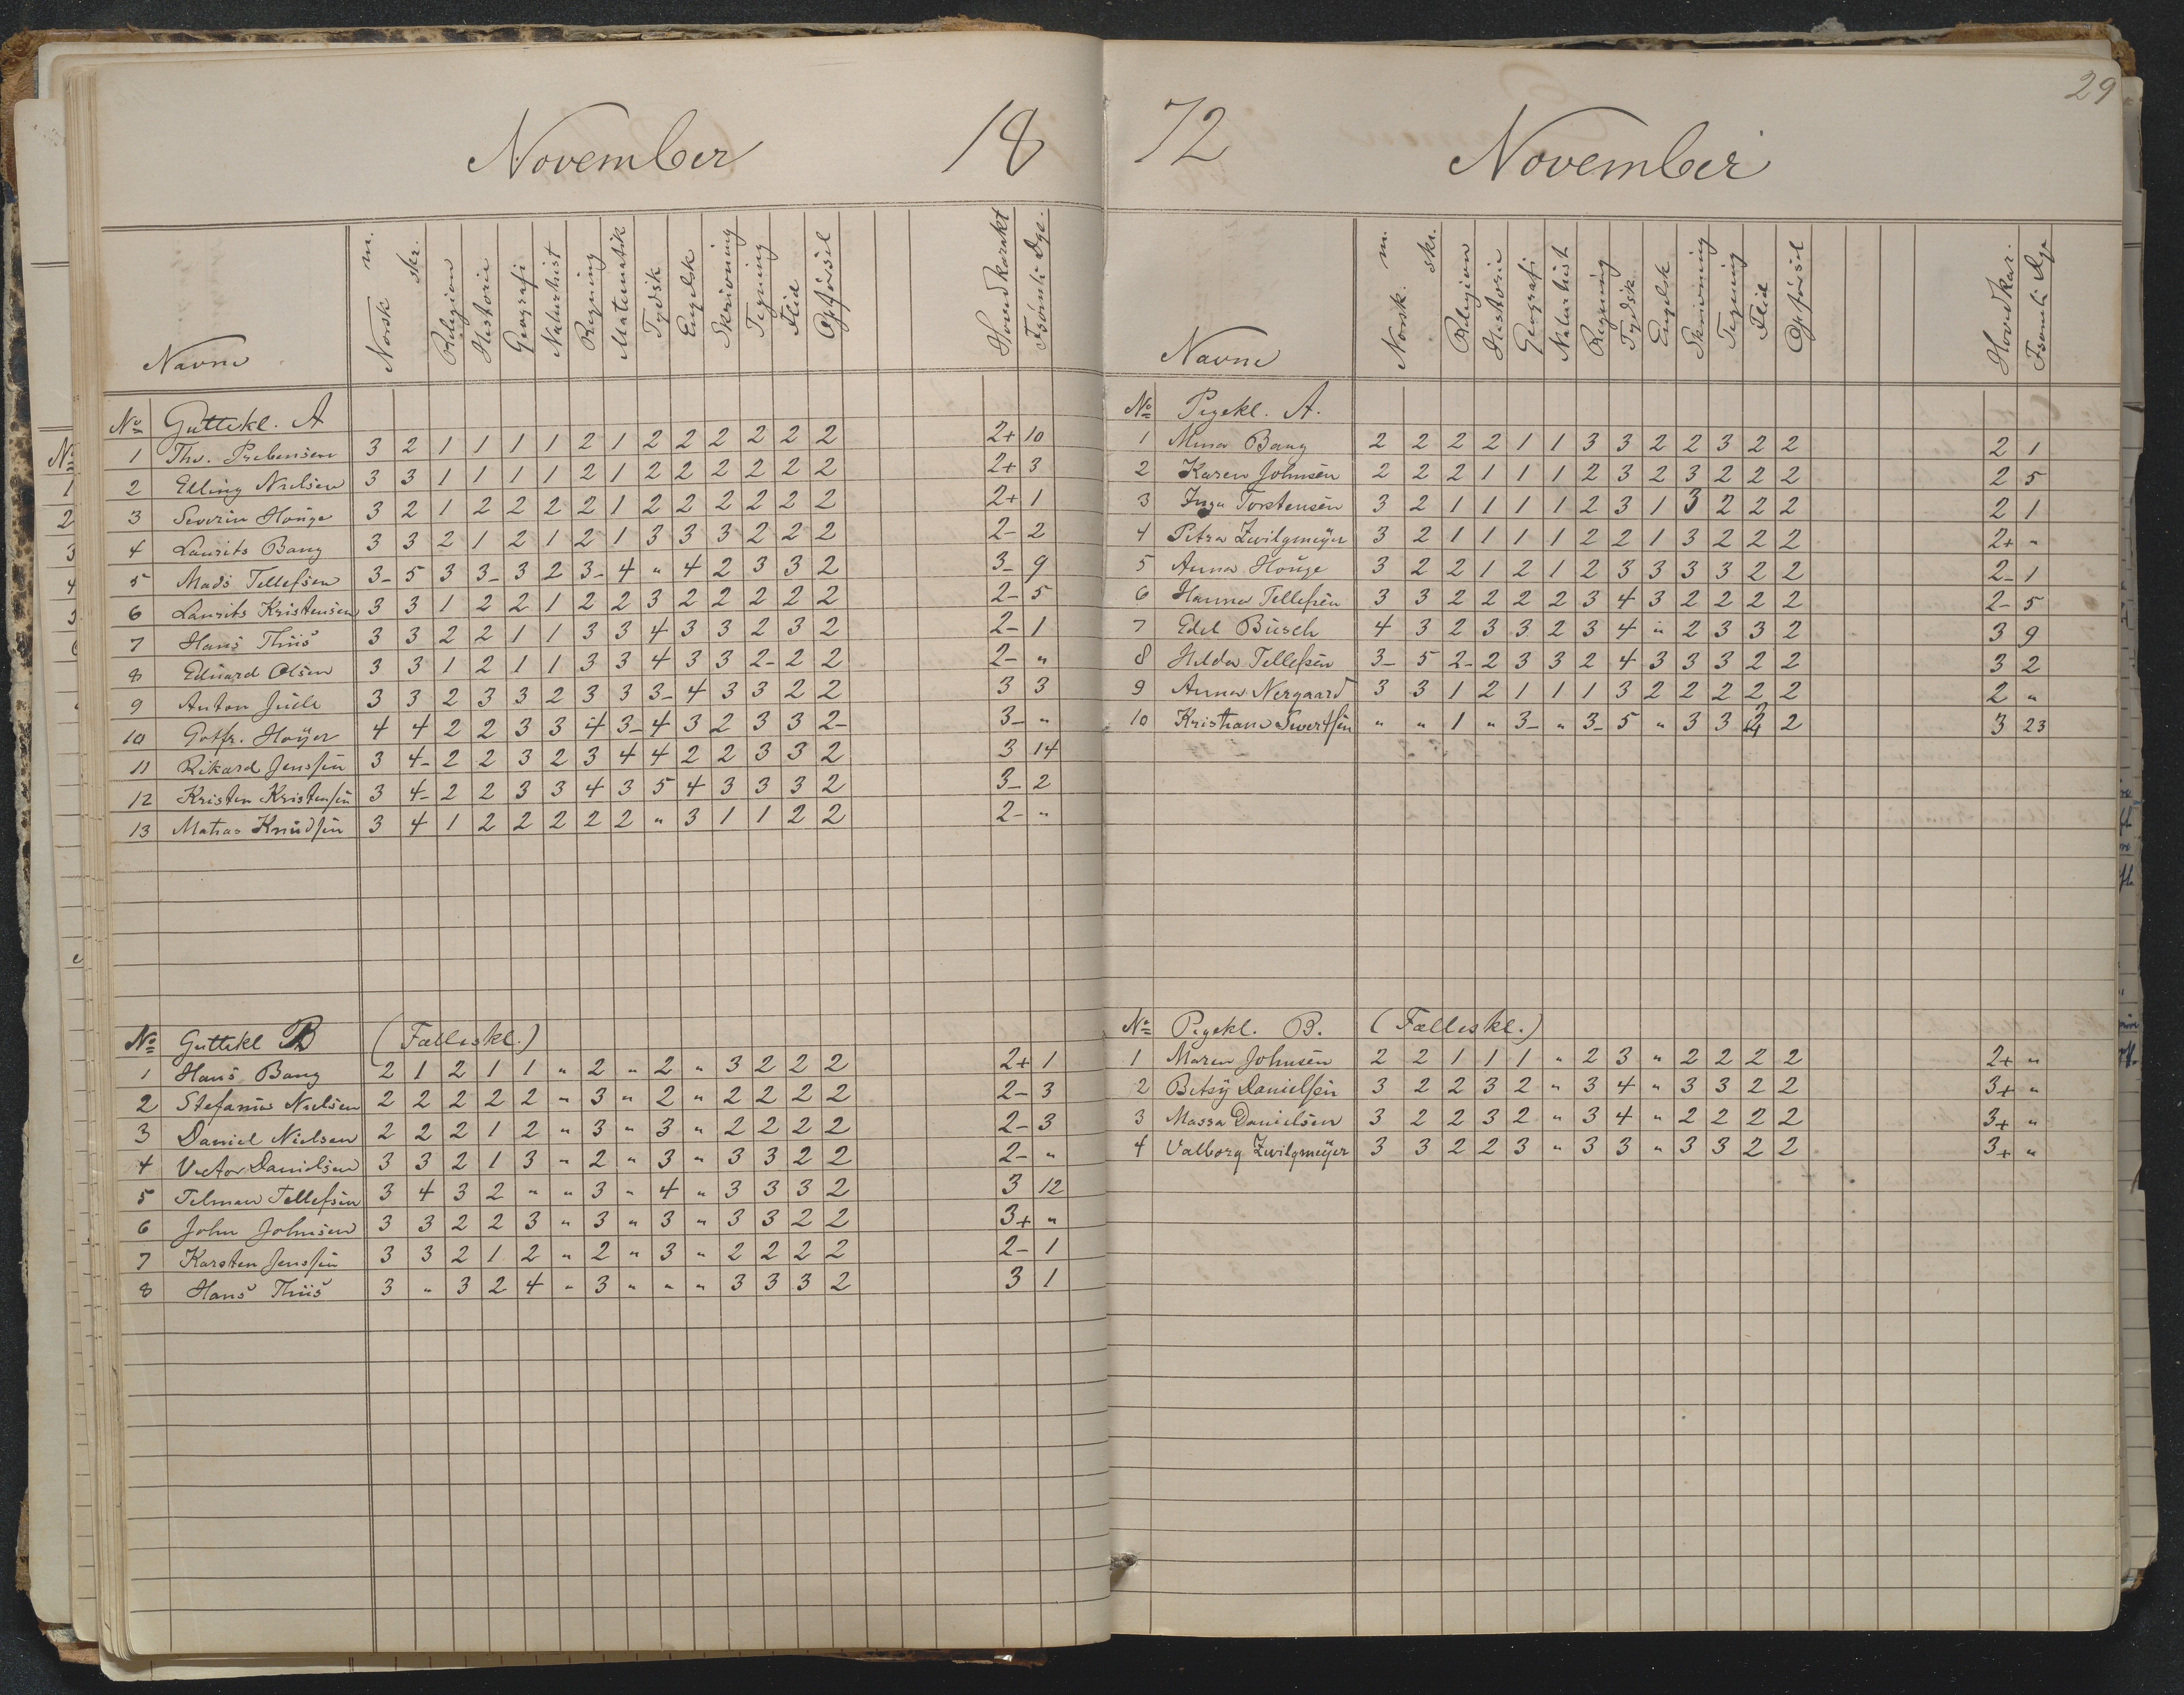 November 18
Navne Norsk m. skr. Religion Historie Geografi Naturhist Regning Matematik Tydsk Engelsk Skrivning Tegning Flid Opførsel Hovedkarakt Fsömte Dge.
No Guttekl. A
1 Thv. Prebensen 3 2 1 1 1 1 2 1 2 2 2 2 2 2 2+ 10
2 Elling Nielsen 3 3 1 1 1 1 2 1 2 2 2 2 2 2 2+ 3
3 Severin Houge 3 2 1 2 2 2 2 1 2 2 2 2 2 2 2+ 1
4 Laurits Bang 3 3 2 1 2 1 2 1 3 3 3 2 2 2 2- 2
5 Mads Tellefsen 3- 5 3 3- 3 2 3- 4 " 4 2 3 3 2 3- 9
6 Laurits Kristensen 3 3 1 2 2 1 2 2 3 2 2 2 2 2 2- 5
7 Hans Thiis 3 3 2 2 1 1 3 3 4 3 3 2 3 2 2- 1
8 Eduard Olsen 3 3 1 2 1 1 3 3 4 3 3 2- 2 2 2- "
9 Anton Juell 3 3 2 3 3 2 3 3 3- 4 3 3 2 2 3 3
10 Gotfr. Høyer 4 4 2 2 3 3 4 3- 4 3 2 3 3 2- 3- "
11 Rikard Jenssen 3 4- 2 2 3 2 3 4 4 2 2 3 3 2 3 14
12 Kristen Kristensen 3 4- 2 2 3 3 4 3 5 4 3 3 3 2 3- 2
13 Matias Knudsen 3 4 1 2 2 2 2 2 " 3 1 1 2 2 2- "
No Guttekl B (Fælleskl.)
1 Hans Bang 2 1 2 1 1 " 2 " 2 " 3 2 2 2 2+ 1
2 Stefanus Nielsen 2 2 2 2 2 " 3 " 2 " 2 2 2 2 2- 3
3 Daniel Nielsen 2 2 2 1 2 " 3 " 3 " 2 2 2 2 2- 3
4 Vector Danielsen 3 3 2 1 3 " 2 " 3 " 3 3 2 2 2- "
5 Telman Tellefsen 3 4 3 2 " " 3 " 4 " 3 3 3 2 3 12
6 John Johnsen 3 3 2 2 3 " 3 " 3 " 3 3 2 2 3+ "
7 Karsten Jenssen 3 3 2 1 2 " 2 " 3 " 2 2 2 2 2- 1
8 Hans Thiis 3 " 3 2 4 " 3 " " " 3 3 3 2 3 1
29
72 November
Navne Norsk. m. skr. Religion Historie Geografi Naturhist Regning Tydsk Engelsk Skrivning Tegning Flid Opførsel Hovedkar. Fsömte Dge
No Pigekl. A.
1 Mina Bang 2 2 2 2 1 1 3 3 2 2 3 2 2 2 1
2 Karen Johnsen 2 2 2 1 1 1 2 3 2 3 2 2 2 2 5
3 Inga Torstensen 3 2 1 1 1 1 2 3 1 3 2 2 2 2 1
4 Petra Zwilgmeyer 3 2 1 1 1 1 2 2 1 3 2 2 2 2+ "
5 Anna Houge 3 2 2 1 2 1 2 3 3 3 3 2 2 2- 1
6 Hanna Tellefsen 3 3 2 2 2 2 3 4 3 2 2 2 2 2- 5
7 Edel Busch 4 3 2 3 3 2 3 4 " 2 3 3 2 3 9
8 Hilda Tellefsen 3- 5 2- 2 3 3 2 4 3 3 3 2 2 3 2
9 Anna Nergaard 3 3 1 2 1 1 1 3 2 2 2 2 2 2 "
10 Kristiane Sivertsen " " 1 " 3- " 3- 5 " 3 3 3 2 3 23
No Pigekl. B. (Fælleskl.)
1 Maren Johnsen 2 2 1 1 1 " 2 3 " 2 2 2 2 2+ "
2 Betsy Danielsen 3 2 2 3 2 " 3 4 " 3 3 2 2 3+ "
3 Massa Danielsen 3 2 2 3 2 " 3 4 " 2 2 2 2 3+ "
4 Valborg Zwilgmeyer 3 3 2 2 3 " 3 3 " 3 3 2 2 3+ "